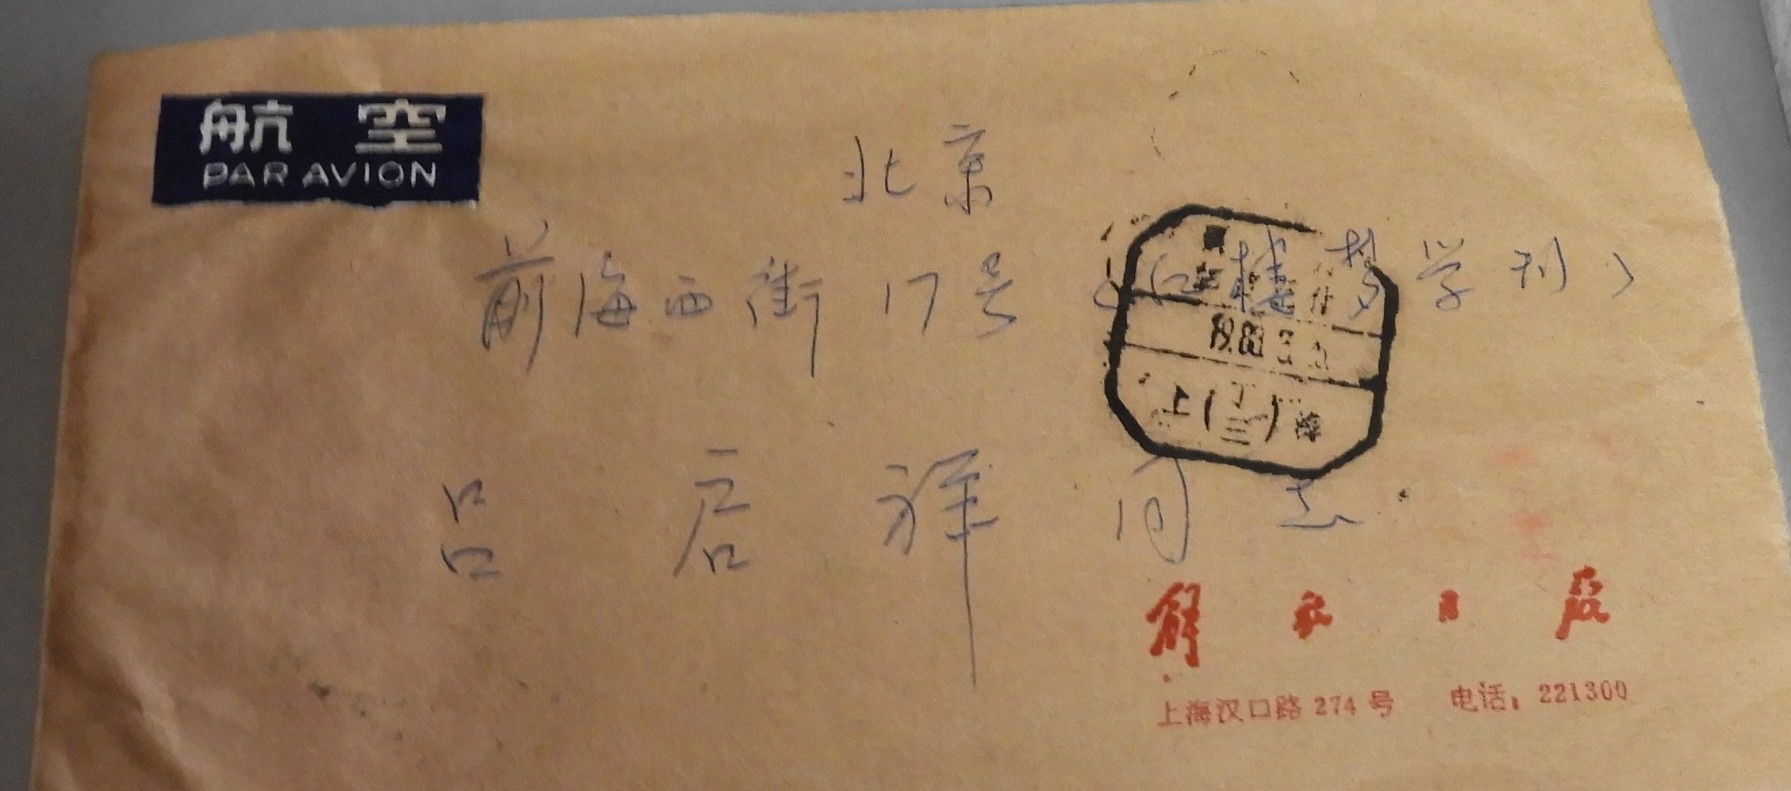 航空
PAR AVION
北京
前海西街17号《红楼梦学刊》
吕启祥同志
上(十三)
解放日报
上海汉口路274号 电话：221300